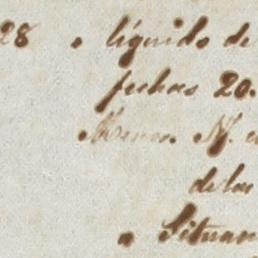 28 • líquido de
fechas 20.
Menos. N.
de las
• Situan